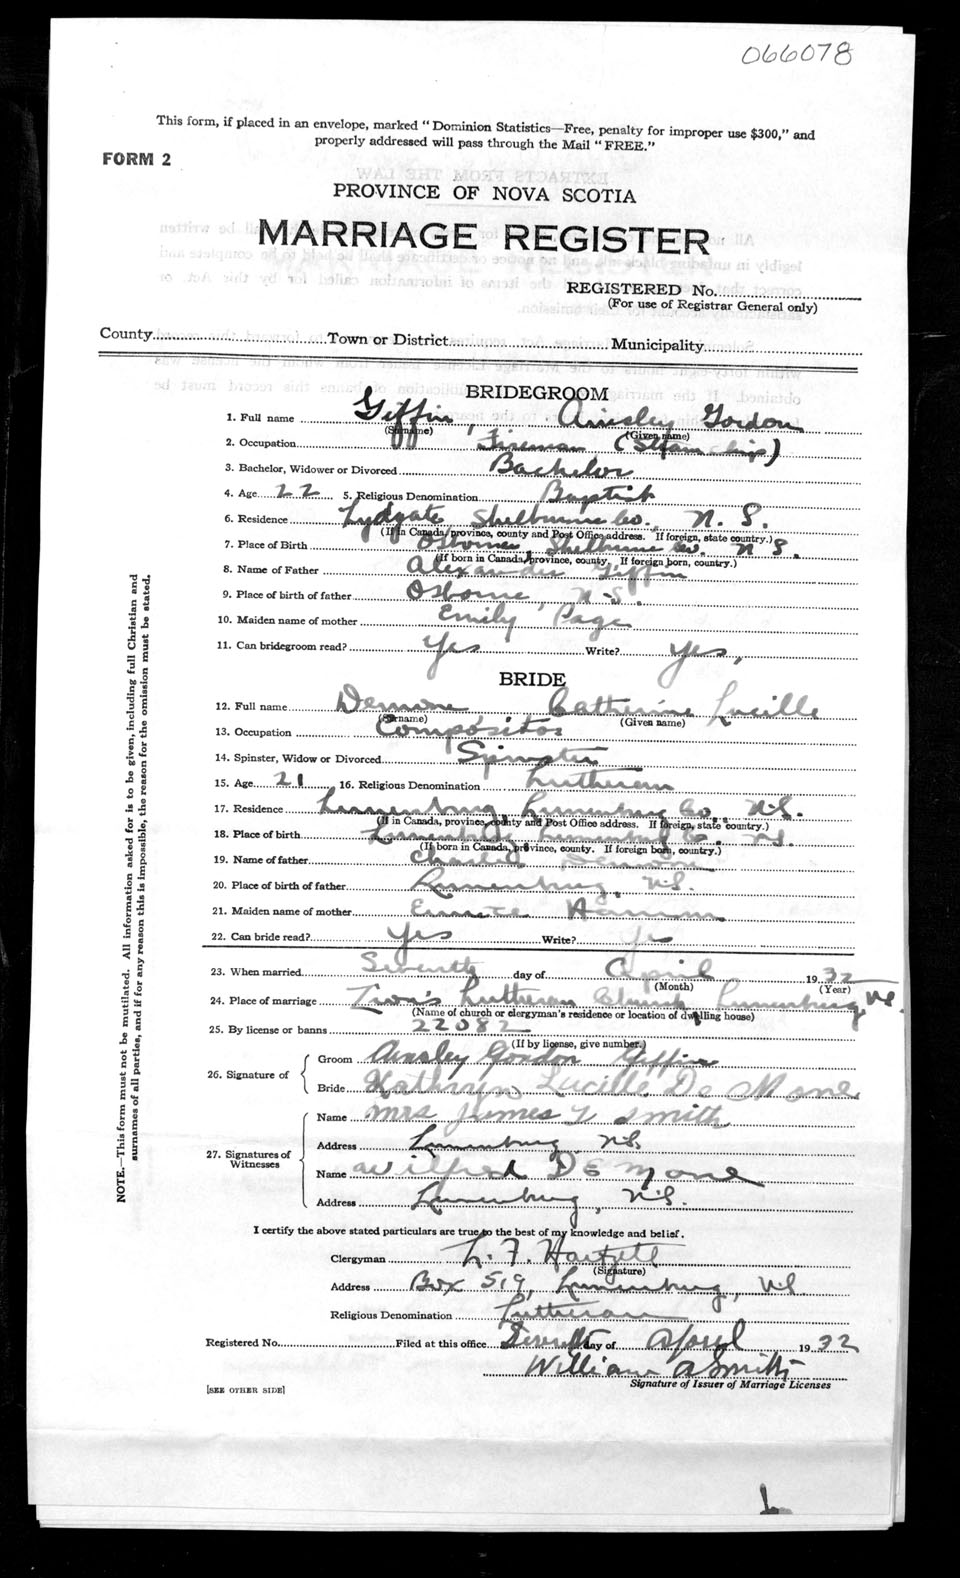 066078
This form, if placed in an envelope, marked "Dominion Statistics—Free, penalty for improper use $300," and
properly addressed will pass through the Mail "FREE."
FORM 2
PROVINCE OF NOVA SCOTIA
MARRIAGE REGISTER
REGISTERED No.
(For use of Registrar General only)
County Town or District Municipality
BRIDEGROOM
1. Full name Giffin, Ainsley Gordon
(Surname) (Given name)
2. Occupation Fireman (Steam Ship)
3. Bachelor, Widower or Divorced Bachelor
4. Age 22 5. Religious Denomination Baptist
6. Residence Lydgate Shelburne Co. N. S.
(If in Canada, province, county and Post Office address. If foreign, state country.)
7. Place of Birth Osborne Shelburne Co. N S.
(If born in Canada, province, county. If foreign born, country.)
8. Name of Father Alexander Giffin
9. Place of birth of father Osborne, N.S.
10. Maiden name of mother Emily Page
11. Can bridegroom read? Yes Write? yes,
BRIDE
12. Full name Demone Catherine Lucille
(Surname) (Given name)
13. Occupation Compositor
14. Spinster, Widow or Divorced Spinster
15. Age 21 16. Religious Denomination Lutheran
17. Residence Lunenburg Lunenburg Co. N.S.
(If in Canada, province, county and Post Office address. If foreign, state country.)
18. Place of birth Lunenburg Lunenburg Co. N.S.
(If born in Canada, province, county. If foreign born, country.)
19. Name of father Charles Demone
20. Place of birth of father Lunenburg, N.S.
21. Maiden name of mother
22. Can bride read? Yes Write? Yes
23. When married Seventh day of April 1932
(Month) (Year)
24. Place of marriage Zion's Lutheran Church Lunenburg, N.S.
(Name of church or clergyman's residence or location of dwelling house)
25. By license or banns 22082
(If by license, give number.)
26. Signature of
Groom Ainsley Gordon Giffin
Bride Kathryn Lucille De Mone
27. Signatures of Witnesses
Name Mrs James Smith
Address Lunenburg N.S.
Name Wilfred DeMone
Address Lunenburg, N.S.
I certify the above stated particulars are true to the best of my knowledge and belief.
Clergyman L. F. Hartzell
(Signature)
Address Box 519, Lunenburg, N.S.
Religious Denomination Lutheran
Registered No. Filed at this office Seventh day of April 1932
William A Smith
Signature of Issuer of Marriage Licenses
[SEE OTHER SIDE]
NOTE.—This form must not be mutilated. All information asked for is to be given, including full Christian and
surnames of all parties, and if for any reason this is impossible, the reason for the omission must be stated.